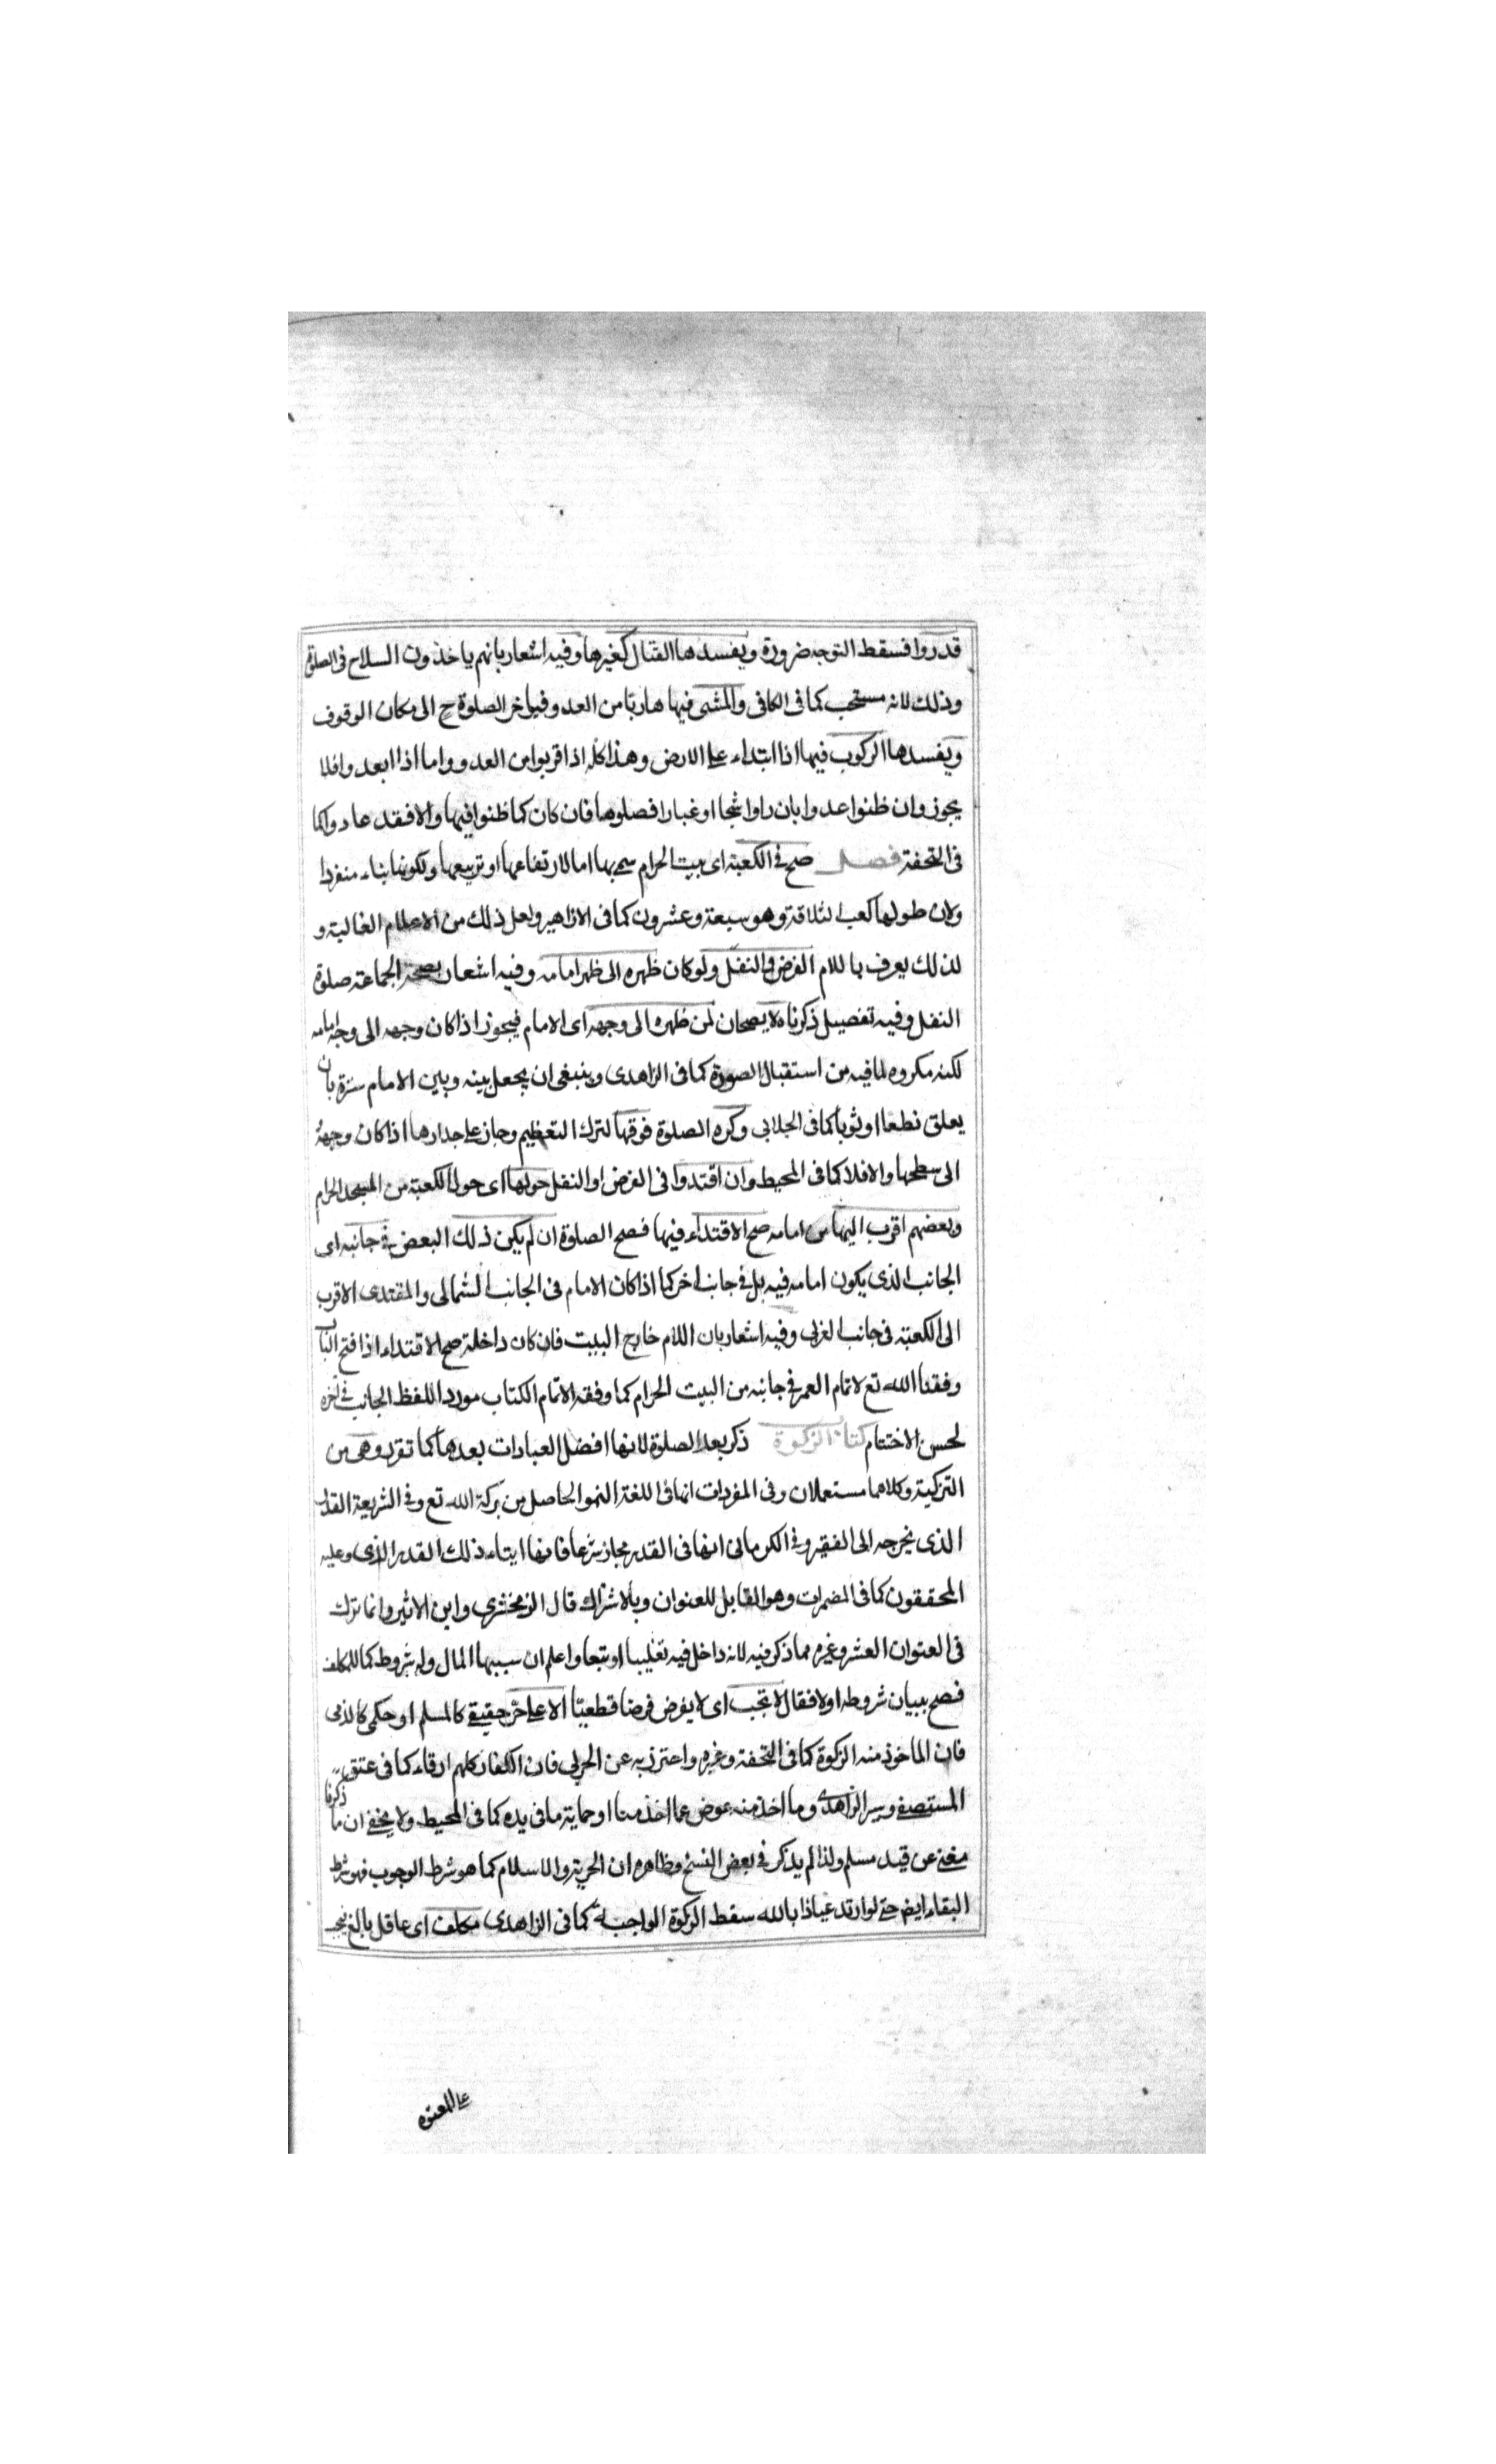 قدروا فسقط التوجه ضرورة ويفسدها القتال كغيرها وفيه اشعار بانهم ياخذون السلاح فى الصلوة
وذلك لانه مستحب كما فى الكافى والمشى فيها هاربا من العدو فياخر الصلوة ح الى مكان الوقوف
ويفسدها الركوب فيها اذا ابتداء على الارض وهذا كله اذا قربوا من العدو واما اذا ابعدوا فلا
يجوز وان ظنوا عدوا بان راوا شجا او غبارا فصلوها فان كان كما ظنوا فيها والا فقد عادوا كما
فى التحفة فصل صح فى الكعبة اى بيت الحرام سمى بها اما لارتفاعها او تربيعها ولكونها بناء منفردا
ولان طولها كعب لثلاثة وهو سبعة وعشرون كما فى الازاهير ولعل ذلك من الاعلام الغالبة و
لذلك يعرف باللام الفرض والنفل ولو كان ظهره الى ظهر امامه وفيه اشعار بصحة الجماعة صلوة
النفل وفيه تفصيل ذكرناه لا يصحان لمن ظهره الى وجهه اى الامام فيجوز اذا كان وجهه الى وجه امامه
لكنه مكروه لما فيه من استقبال الصورة كما فى الزاهدى وينبغى ان يجعل بينه وبين الامام سترة بان
يعلق نطعا او ثوبا كما فى الجلابى وكره الصلوة فوقها لترك التعظيم وجاز على جدارها اذا كان وجهه
الى سطحها والا فلا كما فى المحيط وان اقتدوا فى الفرض او النفل حولها اى حول الكعبة من المسجد الحرام
وبعضهم اقرب اليها من امامه صح الاقتداء فيها فصح الصلوة ان لم يكن ذلك البعض فى جانبه اى
الجانب الذى يكون امامه فيه بل فى جانب اخر كما اذا كان الامام فى الجانب الشمالى والمقتدى الاقرب
الى الكعبة فى جانب الغربى وفيه اشعار بان اللام خارج البيت فان كان داخلة صح الاقتداء اذا فتح الباب
وفقنا الله تع لاتمام العمر فى جانبه من البيت الحرام كما وفقه لاتمام الكتاب مورد اللفظ الجانب فى آخره
لحسن الاختتام كتاب الزكوة ذكر بعد الصلوة لانها افضل العبادات بعدها كما تقرر وهى من
التزكية وكلاهما مستعملان وفى المفردات انها فى اللغة النمو الحاصل من بركة الله تع وفى الشريعة القدر
الذى يخرجه الى الفقير وفى الكرمانى انها فى القدر مجاز شرعا فانها ايتاء ذلك القدر الذى وعليه
المحققون كما فى المضمرات وهو القابل للعنوان وبالاشتراك قال الزمخشرى وابن الاثير وانما ترك
فى العنوان العشر وغيره مما ذكر فيه لانه داخل فيه تغليبا او تبعا واعلم ان سببها المال وله شروط كما للمكلف
فصح ببيان شروطه اولا فقال لا تجب اى لا يفرض فرضا قطعيا الا على حر حقيقى كالمسلم او حكمى كالذمى
فان الماخوذ منه الزكوة كما فى التحفة وغيره واحترز به عن الحربى فان الكفار كلهم ارقاء كما فى عتق
المستصفى وسير الزاهدى وما اخذ منه عوض عما اخذ منا او حماية ما فى يده كما فى المحيط ولا يخفى ان ما ذكرنا
مغنى عن قيد مسلم ولذا لم يذكر فى بعض النسخ وظاهره ان الحرية والاسلام كما هو شرط الوجوب فهو شرط
البقاء ايض حتى لو ارتد عياذا بالله سقط الزكوة الواجبة كما فى الزاهدى مكلف اى عاقل بالغ
على المعتوه